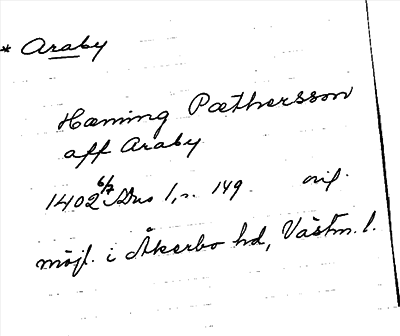 * Araby
Hæming Pæthersson
aff Araby
1402 6/7 SDns 1, n. 149. orig.
möjl. i Åkerbo hd, Västm. l.